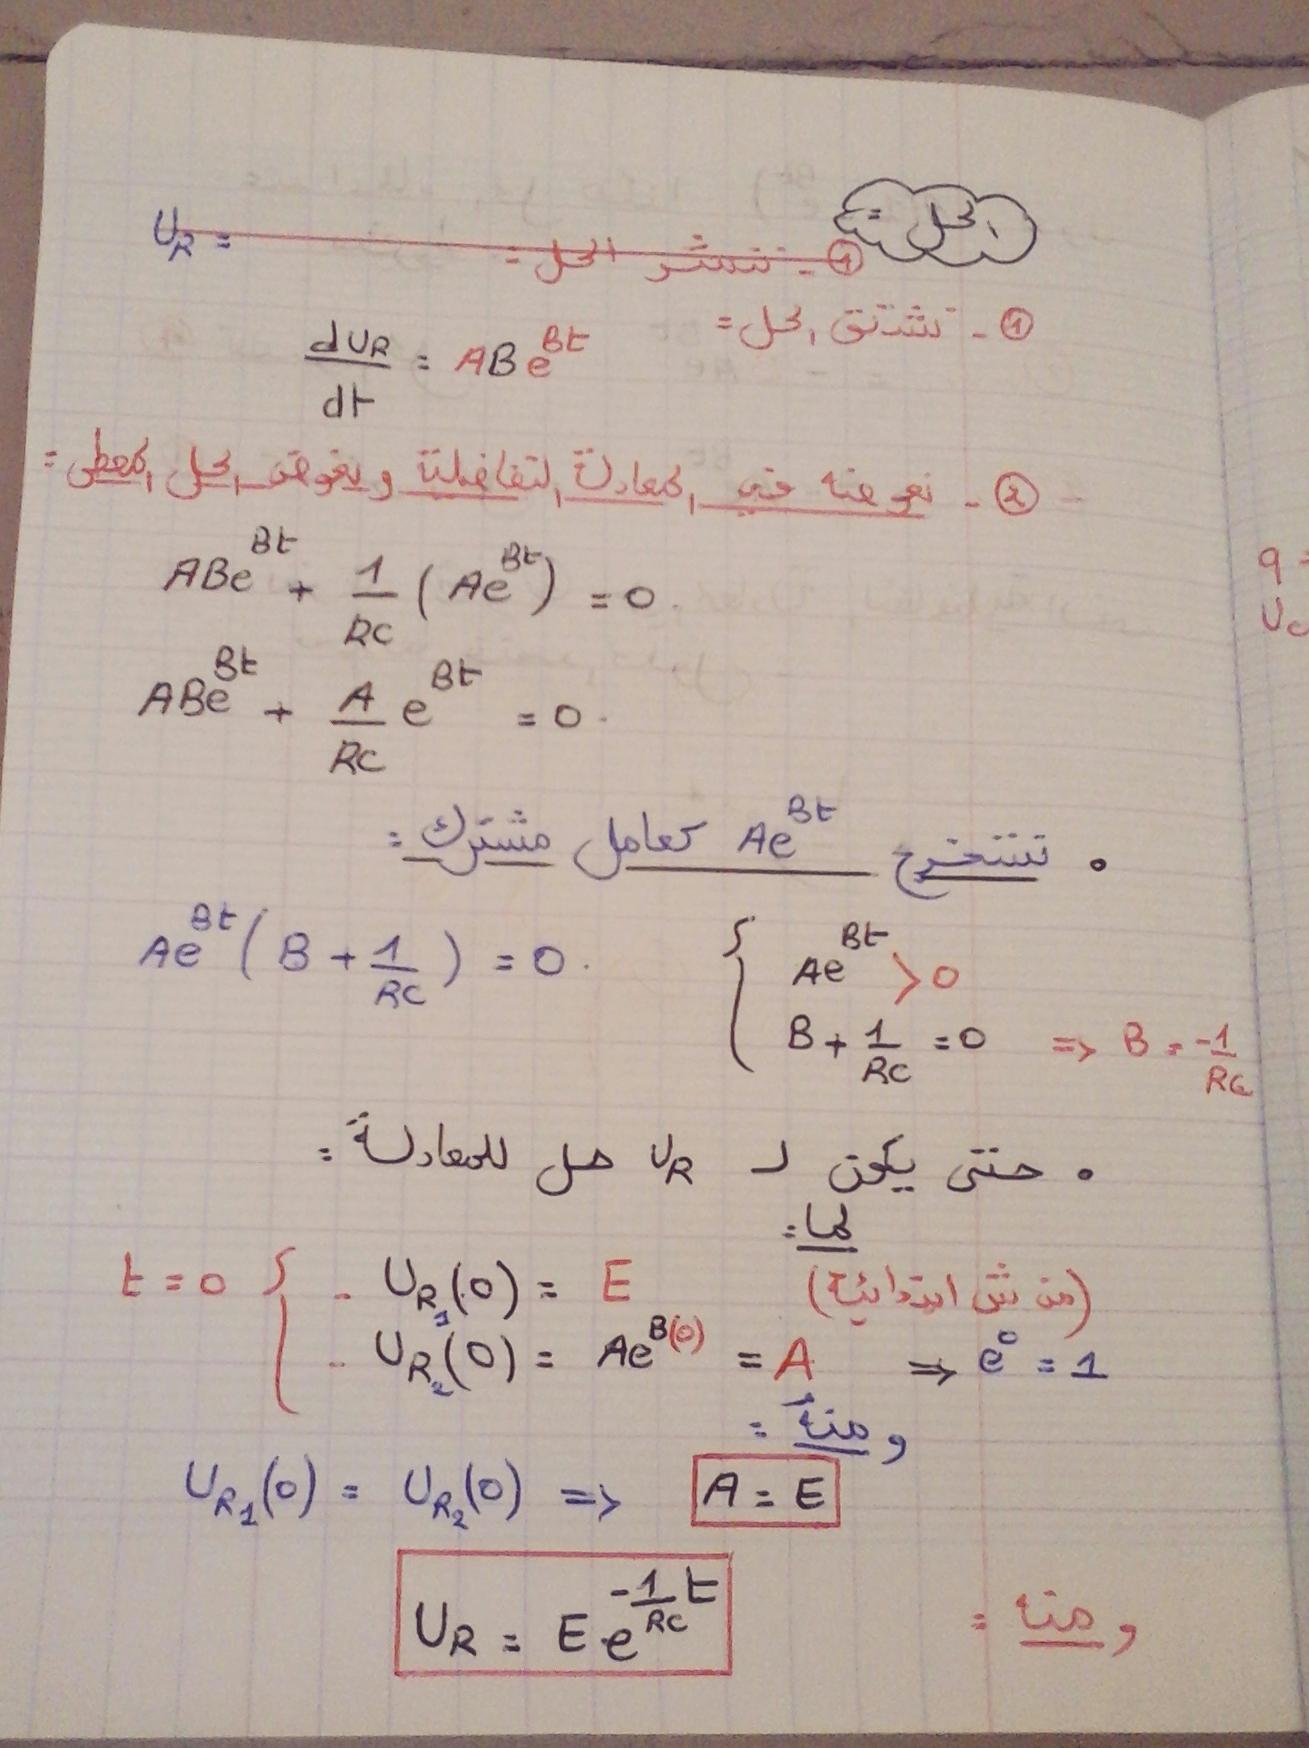 الحل =
U_R = ①- ننشر الحل =
①- نشتق الحل =
dU_R/dt = ABe^{Bt}
②- نعوضه في المعادلة التفاضلية ونعوض الحل المعطى =
ABe^{Bt} + 1/RC (Ae^{Bt}) = 0.
ABe^{Bt} + A/RC e^{Bt} = 0.
• نستخرج Ae^{Bt} كعامل مشترك =
Ae^{Bt} (B + 1/RC) = 0. { Ae^{Bt} > 0
B + 1/RC = 0 => B = -1/RC
• حتى يكون لـ U_R حل للمعادلة =
لما =
t = 0 { - U_{R_1}(0) = E (من ش ابتدائية)
- U_{R_2}(0) = Ae^{B(0)} = A => e^0 = 1
ومنه =
U_{R_1}(0) = U_{R_2}(0) => A = E
ومنه = U_R = E.e^{-1/RC t}
q =